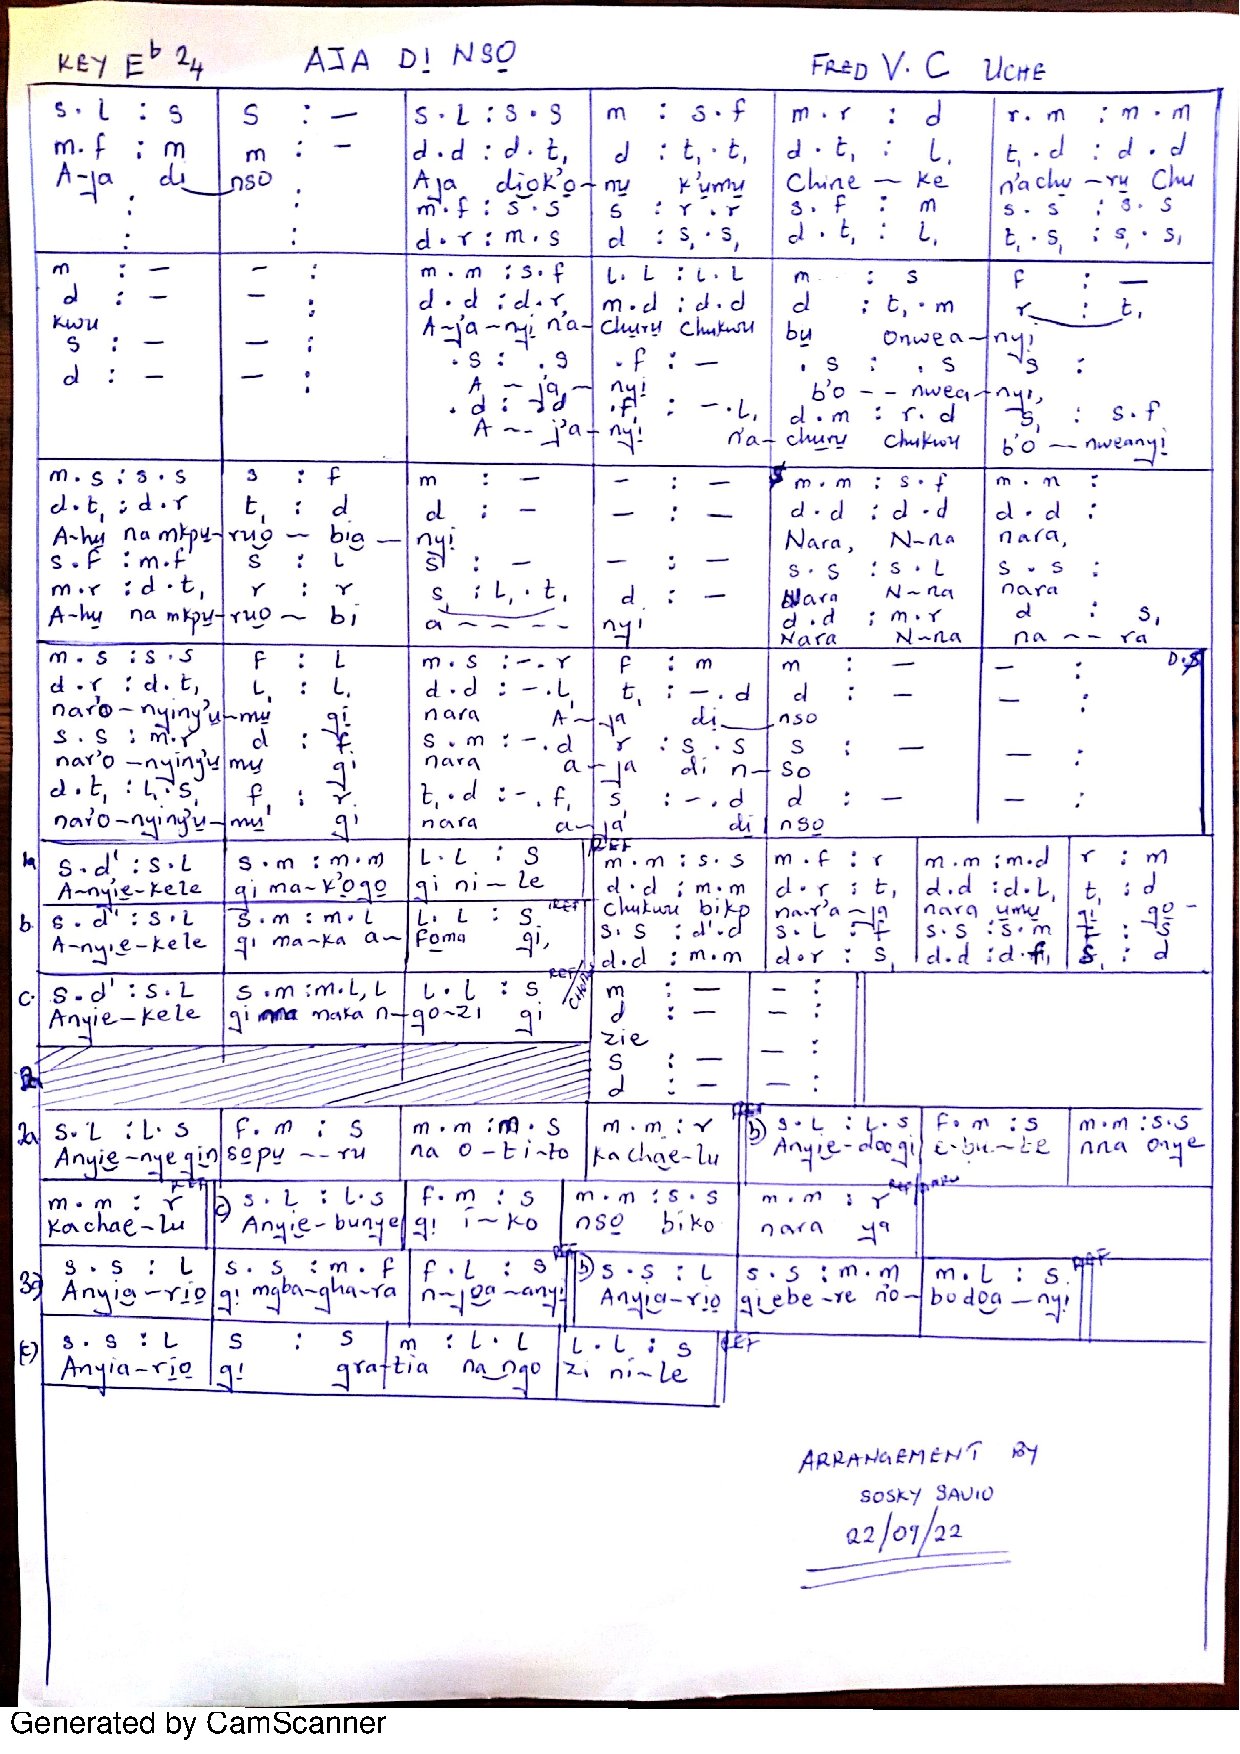 KEY E♭ 2/4 AJA DỊ NSỌ FRED V. C UCHE
s . l : s | s : – | s . l : s . s | m : s . f | m . r : d | r . m : m . m
m . f : m | m : – | d . d : d . t, | d : t, . t, | d . t, : l, | t, . d : d . d
A-ja dị nsọ | Aja dịok'ọ-nụ k'ụmụ Chine-ke n'achụ-rụ Chu
: | : | m . f : s . s | s : r . r | s . f : m | s . s : s . s
: | : | d . r : m . s | d : s, . s, | d . t, : l, | t, . s, : s, . s,
m : – | – : | m . m : s . f | l . l : l . l | m : s | f : –
d : – | – : | d . d : d . r, | m . d : d . d | d : t, . m | r : t,
kwu | A-j'a-nyị n'a-chụrụ Chukwu bụ Onwea-nyị
s : – | – : | . s : . s | . f : – | . s : . s | s :
A – j'a – nyị b'o -- nwea-nyị,
d : – | – : | . d : . d | . f : – . l, | d . m : r . d | s, : s . f
A -- j'a-nyị n'a-chụrụ chukwu b'o – nweanyị
m . s : s . s | s : f | m : – | – : – | m . m : s . f | m . m :
d . t, : d . r | t, : d | d : – | – : – | d . d : d . d | d . d :
A-hụ na mkpụ-rụọ – bịa – nyị | Nara, N-na nara,
s . f : m . f | s : l | s : – | – : – | s . s : s . l | s . s :
Nara N-na nara
m . r : d . t, | r : r | s : l, . t, | d : – | d . d : m . r | d : s,
A-hụ na mkpụ-rụọ – bị a ----- nyị | Nara N-na na -- ra
m . s : s . s | f : l | m . s : – . r | f : m | m : – | – : D.S
d . r : d . t, | l, : l, | d . d : – . l, | t, : – . d | d : – | – :
nar'ọ-nyịny'ụ-mụ gị nara A-ja dị nsọ
s . s : m . r | d : f | s . m : – . d | r : s . s | s : – | – :
nar'o-nyịny'ụ mụ gị nara a-ja dị n-sọ
d . t, : l, . s, | f, : r | t, . d : – . f, | s : – . d | d : – | – :
nar'o-nyịny'ụ-mụ gị nara a-ja dị nsọ
1a s . d' : s . l | s . m : m . m | l . l : s | REF m . m : s . s | m . f : r | m . m : m . d | r : m
A-nyịe-kele gị ma-k'ọgọ gị ni-le | d . d : m . m | d . r : t, | d . d : d . l, | t, : d
chukwu biko na.r'a-ja nara ụmụ gị gọ-
b. s . d' : s . l | s . m : m . l | l . l : s REF | s . s : d' . d | s . l : f | s . s : s . m | f : s
A-nyịe-kele gị ma-ka a-foma gị, | d . d : m . m | d . r : s, | d . d : d . f, | s, : d
c. s . d' : s . l | s . m : m . l, l | l . l : s REF/CHORUS | m : – | – :
Anyịe-kele gị maka n-gọ-zi gị | d : – | – :
zie
s : – | – :
d : – | – :
2a s . l : l . s | f . m : s | m . m : m . s | m . m : r REF | b) s . l : l . s | f . m : s | m . m : s . s
Anyịe-nyegịn sọpụ -- rụ na o-ti-to kachae-lu | Anyịe-doogị e-bu-be nna onye
m . m : r REF | c) s . l : l . s | f . m : s | m . m : s . s | m . m : r
kachae-lu | Anyịe-bunye gị i-ko nsọ biko nara ya
3a) s . s : l | s . s : m . f | f . l : s REF | b) s . s : l | s . s : m . m | m . l : s REF
Anyịa-rịọ gị mgba-gha-ra n-jọa-anyị | Anyịa-rịọ gị ebe-re n'o-bodoa-nyị
c) s . s : l | s : s | m : l . l | l . l : s REF
Anyịa-rịọ gị gra-tia na ngo zi ni-le
ARRANGEMENT BY
SOSKY SAVIO
22/09/22
Generated by CamScanner